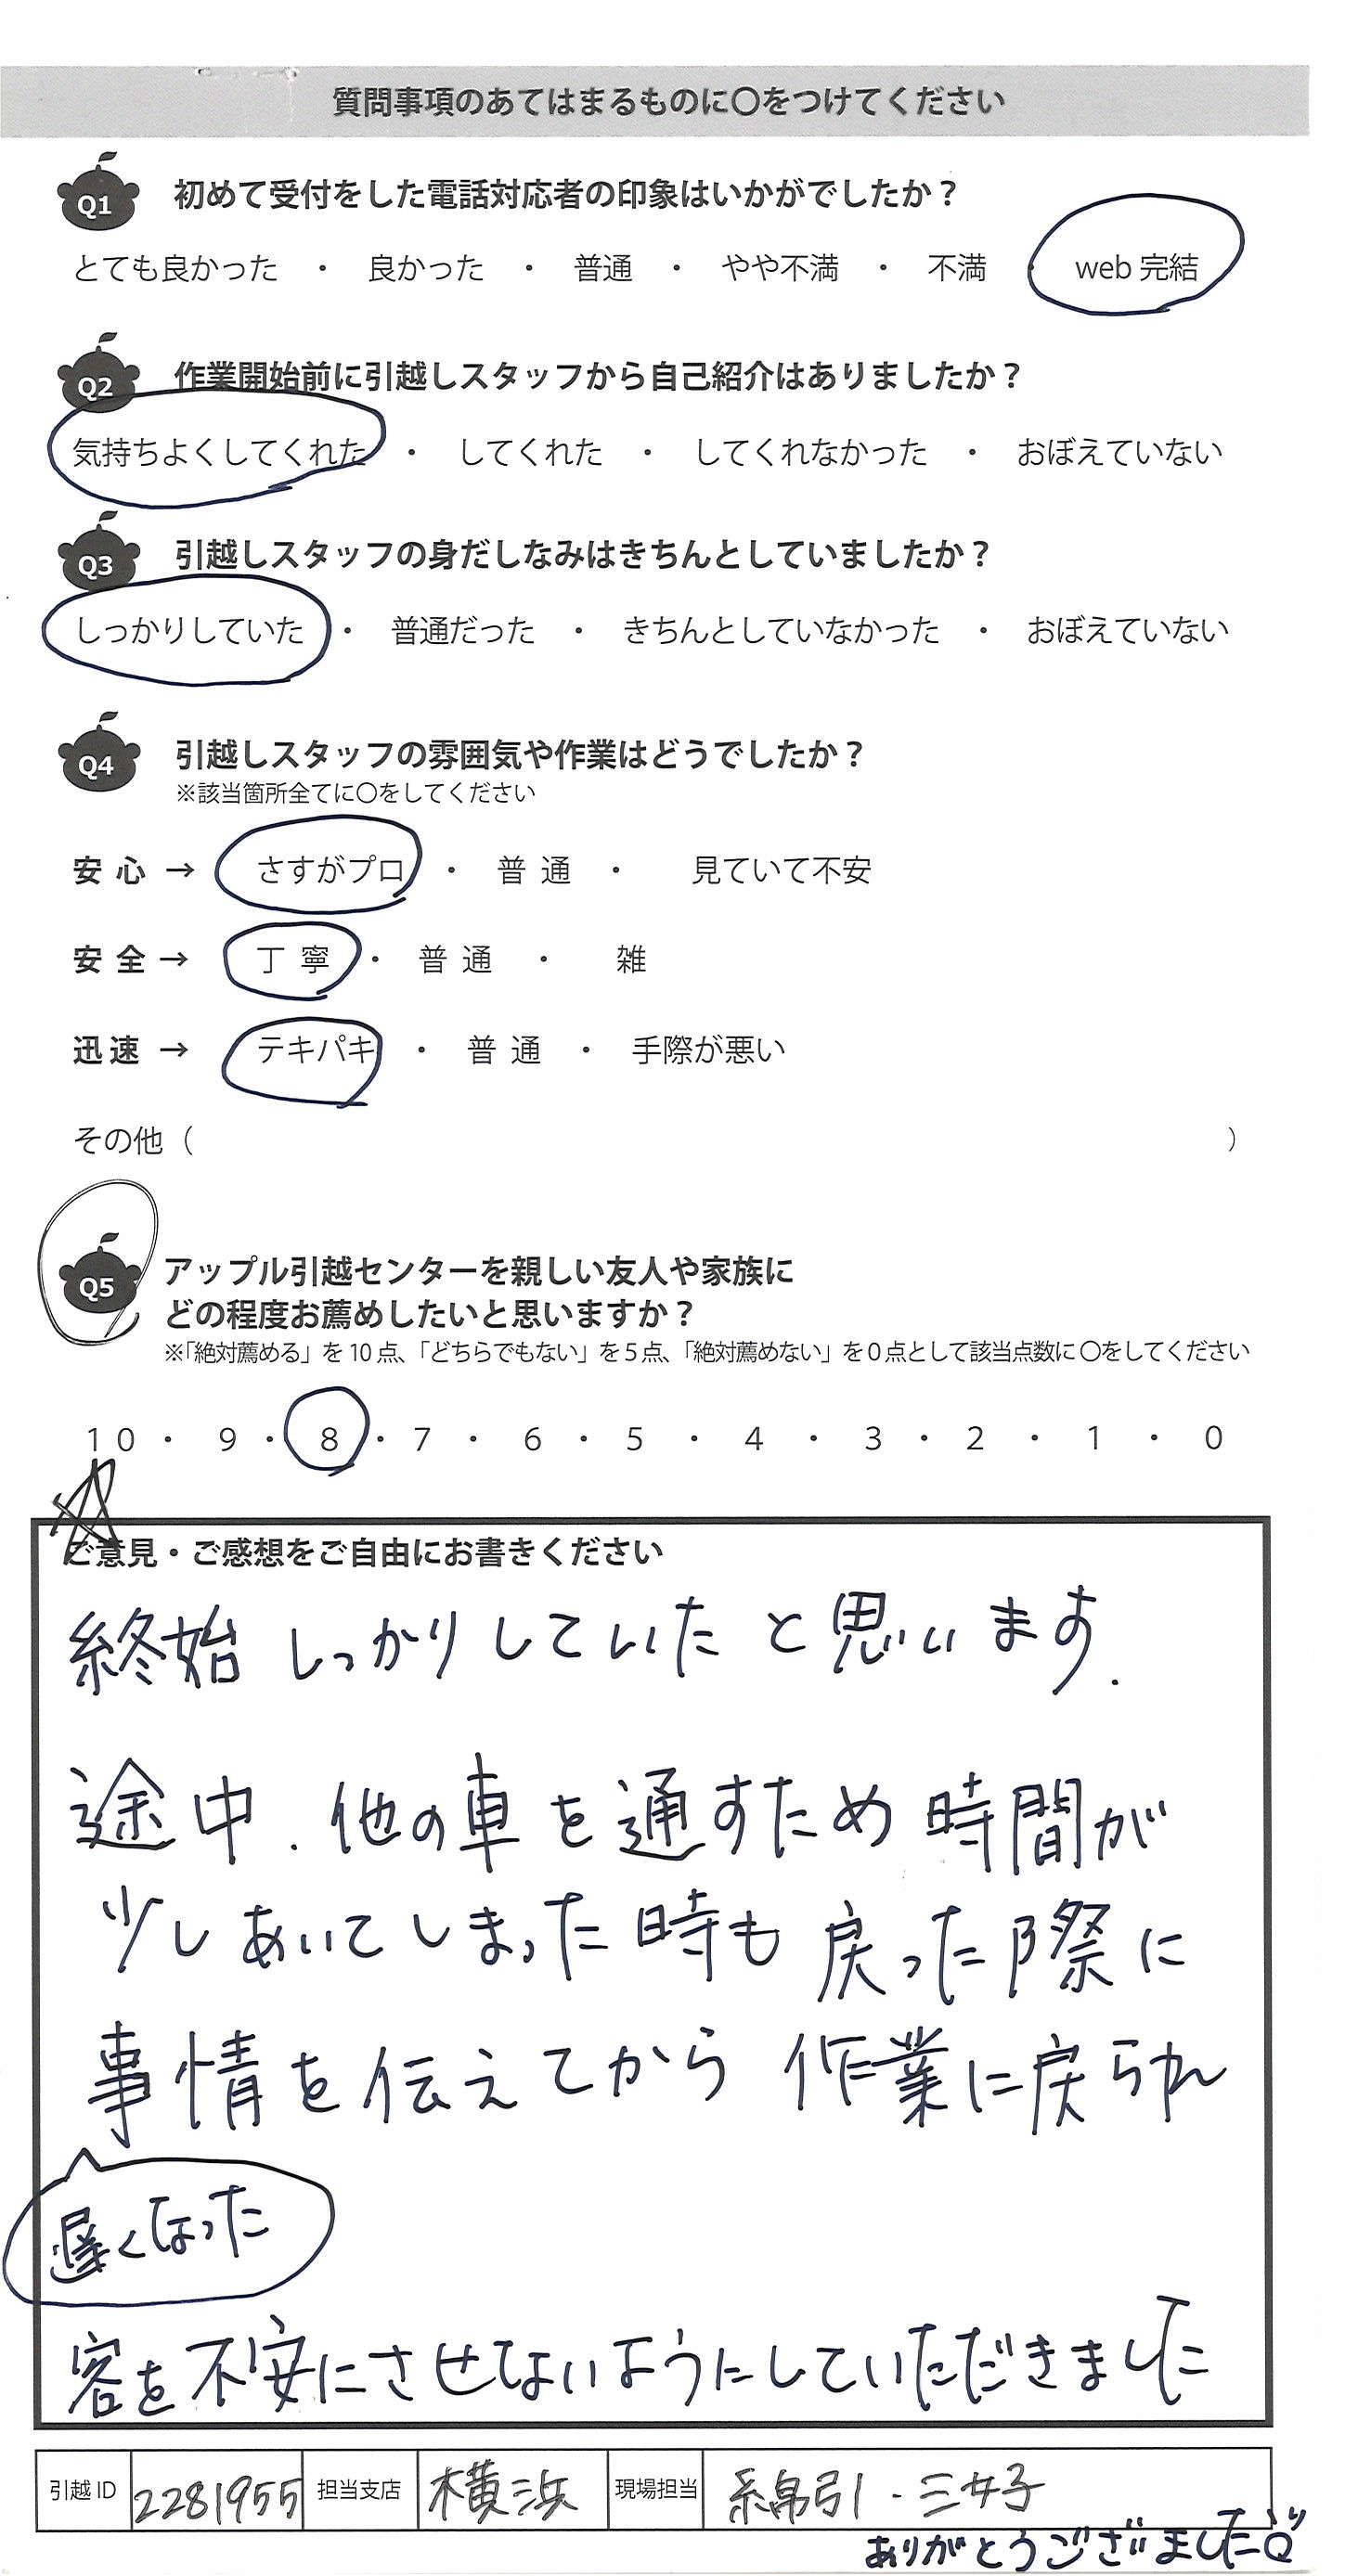 質問事項のあてはまるものに〇をつけてください
Q1 初めて受付をした電話対応者の印象はいかがでしたか？
とても良かった ・ 良かった ・ 普通 ・ やや不満 ・ 不満 ・ web 完結
Q2 作業開始前に引越しスタッフから自己紹介はありましたか？
気持ちよくしてくれた ・ してくれた ・ してくれなかった ・ おぼえていない
Q3 引越しスタッフの身だしなみはきちんとしていましたか？
しっかりしていた ・ 普通だった ・ きちんとしていなかった ・ おぼえていない
Q4 引越しスタッフの雰囲気や作業はどうでしたか？
※該当箇所全てに〇をしてください
安心 → さすがプロ ・ 普通 ・ 見ていて不安
安全 → 丁寧 ・ 普通 ・ 雑
迅速 → テキパキ ・ 普通 ・ 手際が悪い
その他（ ）
Q5 アップル引越センターを親しい友人や家族に
どの程度お薦めしたいと思いますか？
※「絶対薦める」を 10 点、「どちらでもない」を 5 点、「絶対薦めない」を 0 点として該当点数に 〇をしてください
10 ・ 9 ・ 8 ・ 7 ・ 6 ・ 5 ・ 4 ・ 3 ・ 2 ・ 1 ・ 0
ご意見・ご感想をご自由にお書きください
終始しっかりしていたと思います.
途中.他の車を通すため時間が
少しあいてしまった時も戻った際に
事情を伝えてから作業に戻られ
遅くなった
客を不安にさせないようにしていただきました
引越 ID 2281955 担当支店 横浜 現場担当 綿引・三好
ありがとうございました